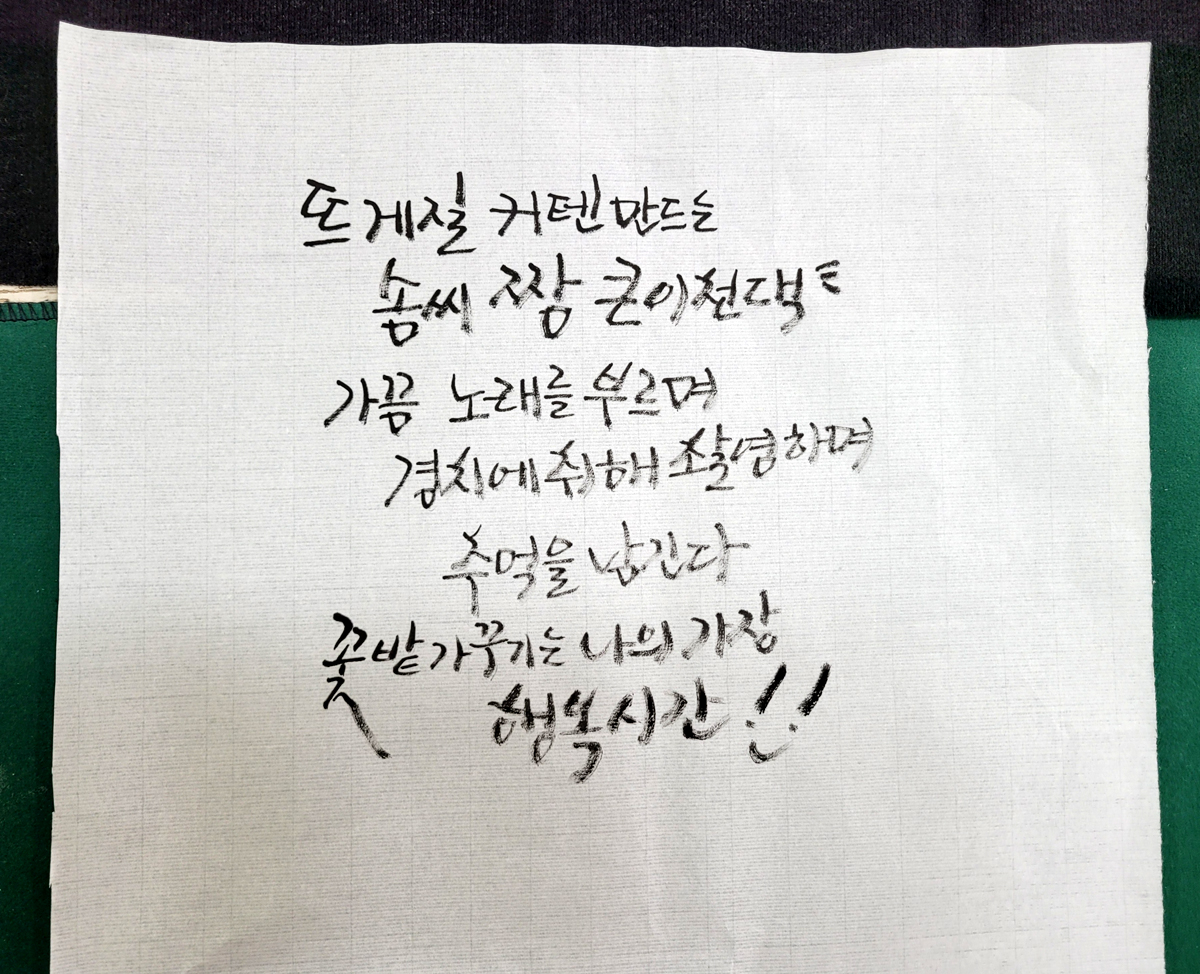 뜨게질 커텐 만드는
솜씨 짱 큰이천댁
가끔 노래를 부르며
경치에 취해 촬영하며
추억을 남긴다
꽃밭 가꾸기는 나의 가장
행복시간 !!